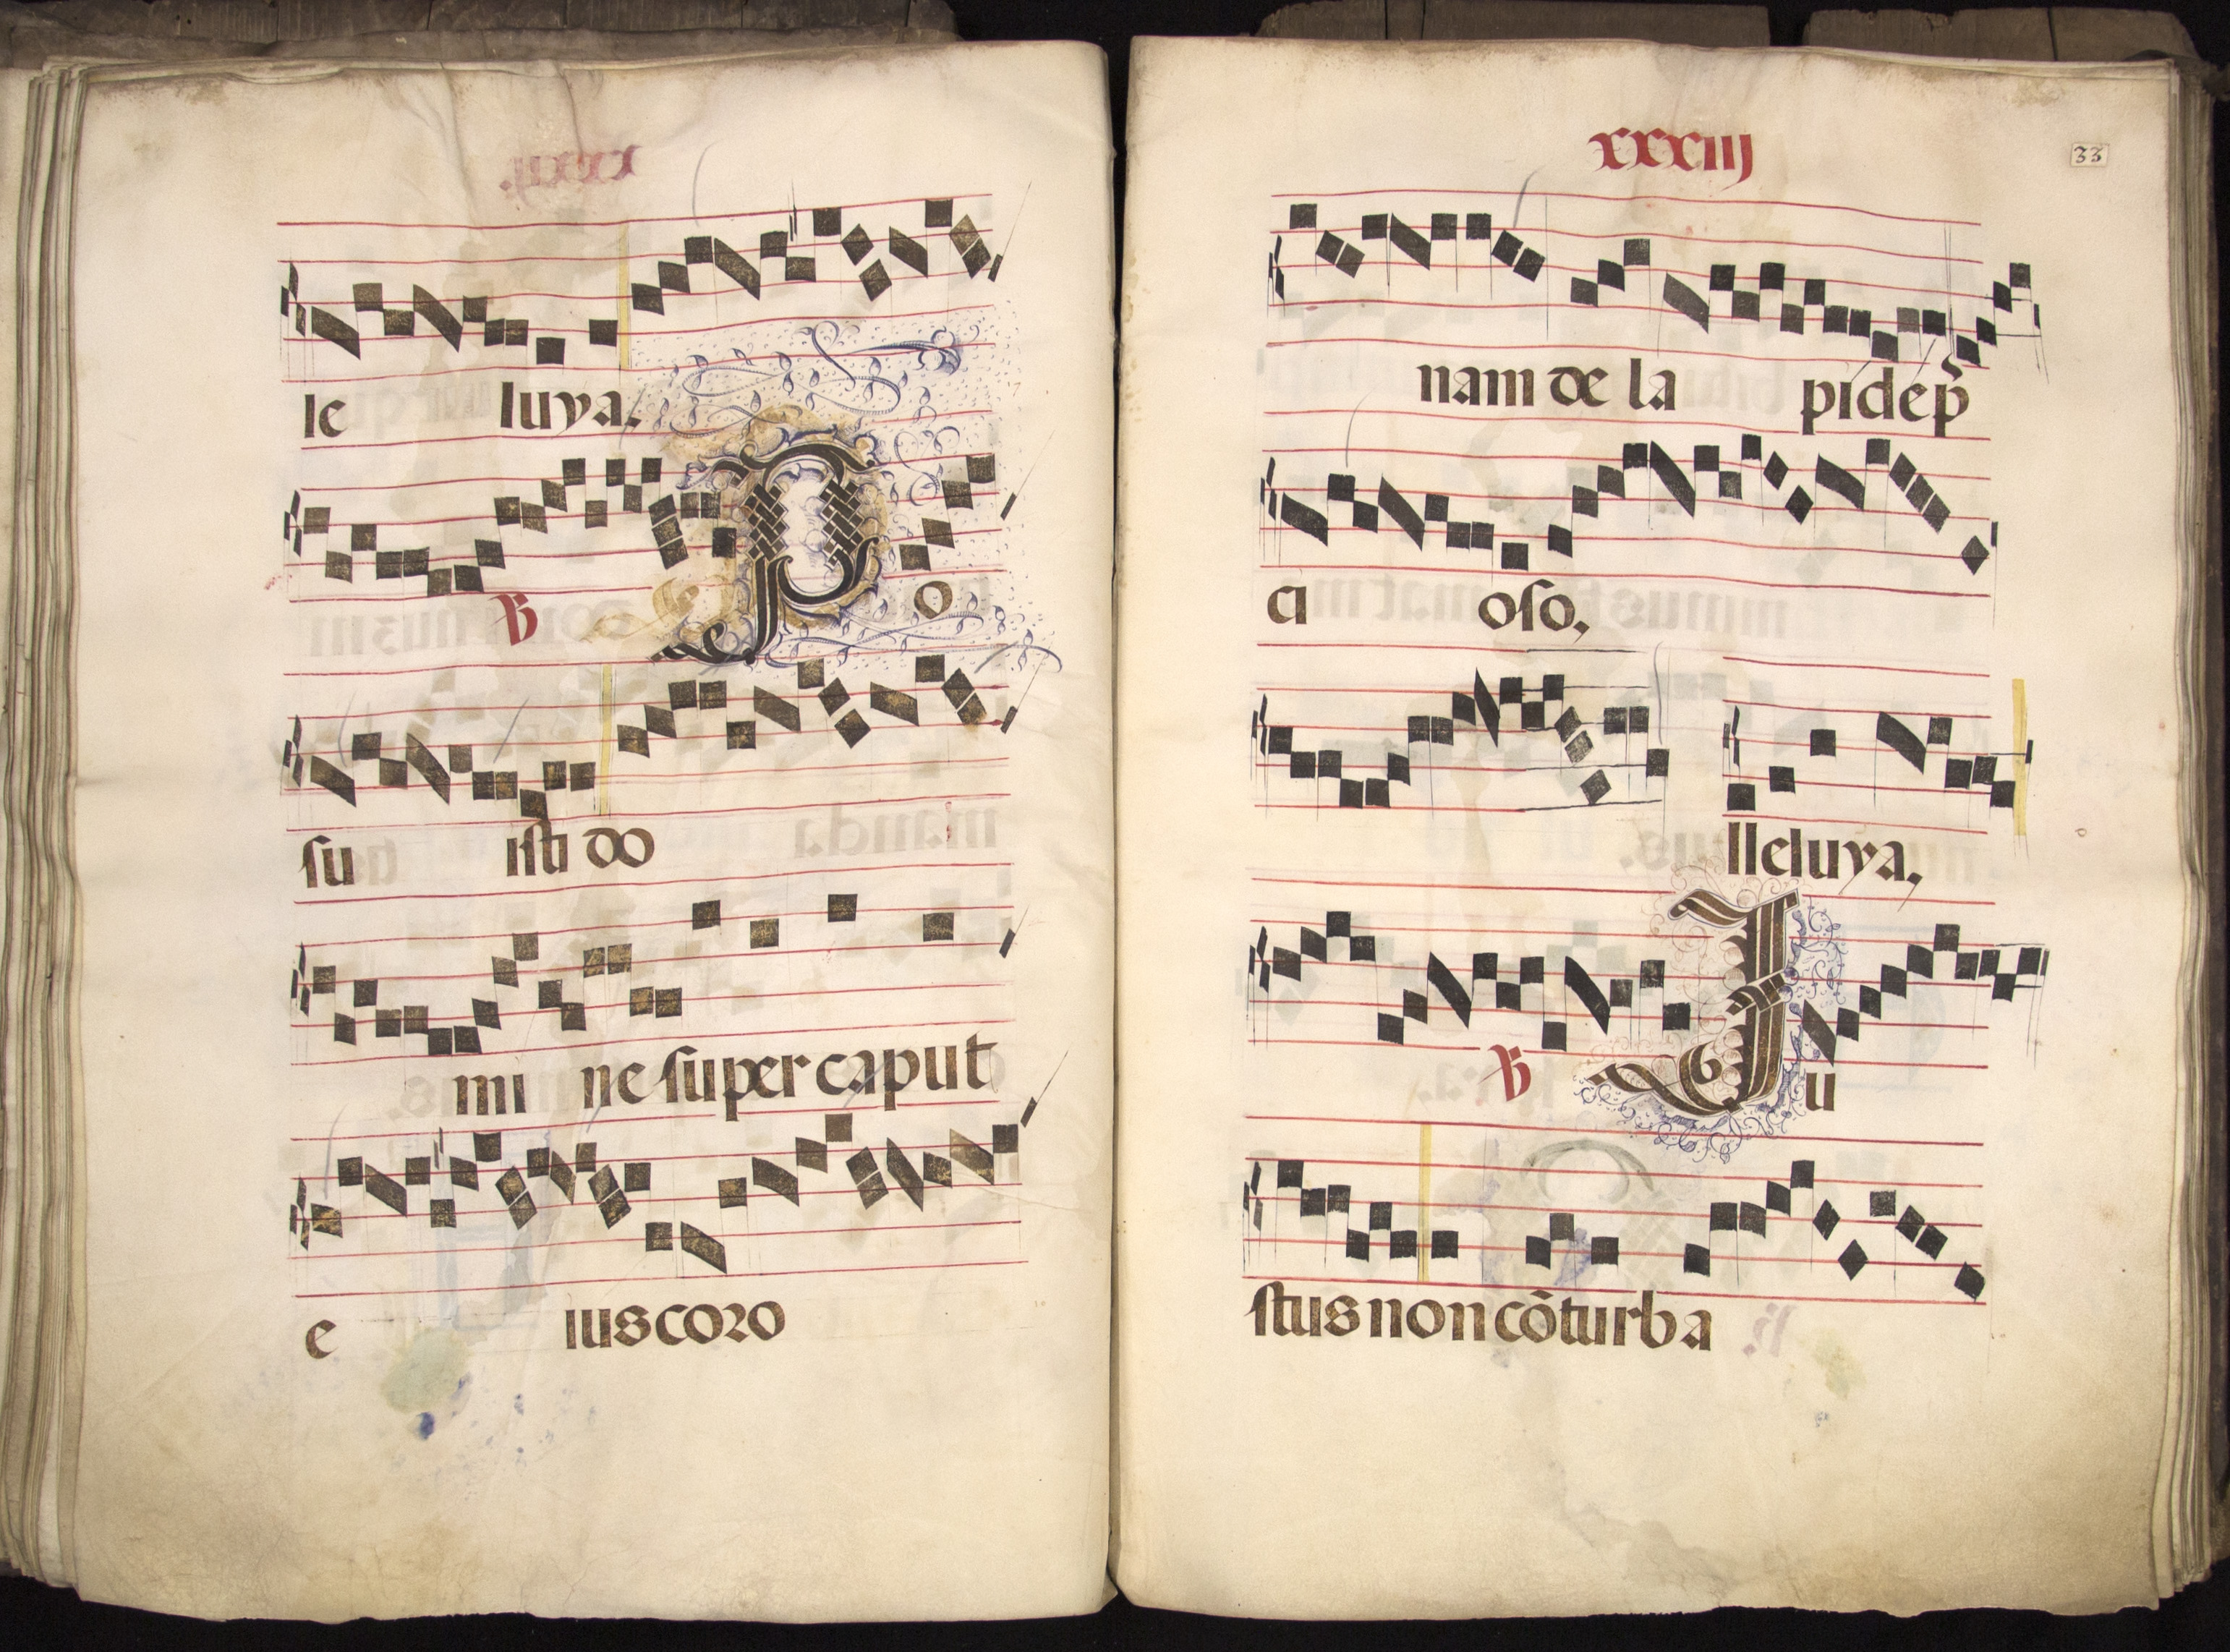 le luya.
℟ Po
su isti do
mi ne super caput
e ius coro
xxxiij
33
nam de la pide p̃
ci oso,
lleluya,
℟ Ju
stus non cõturba